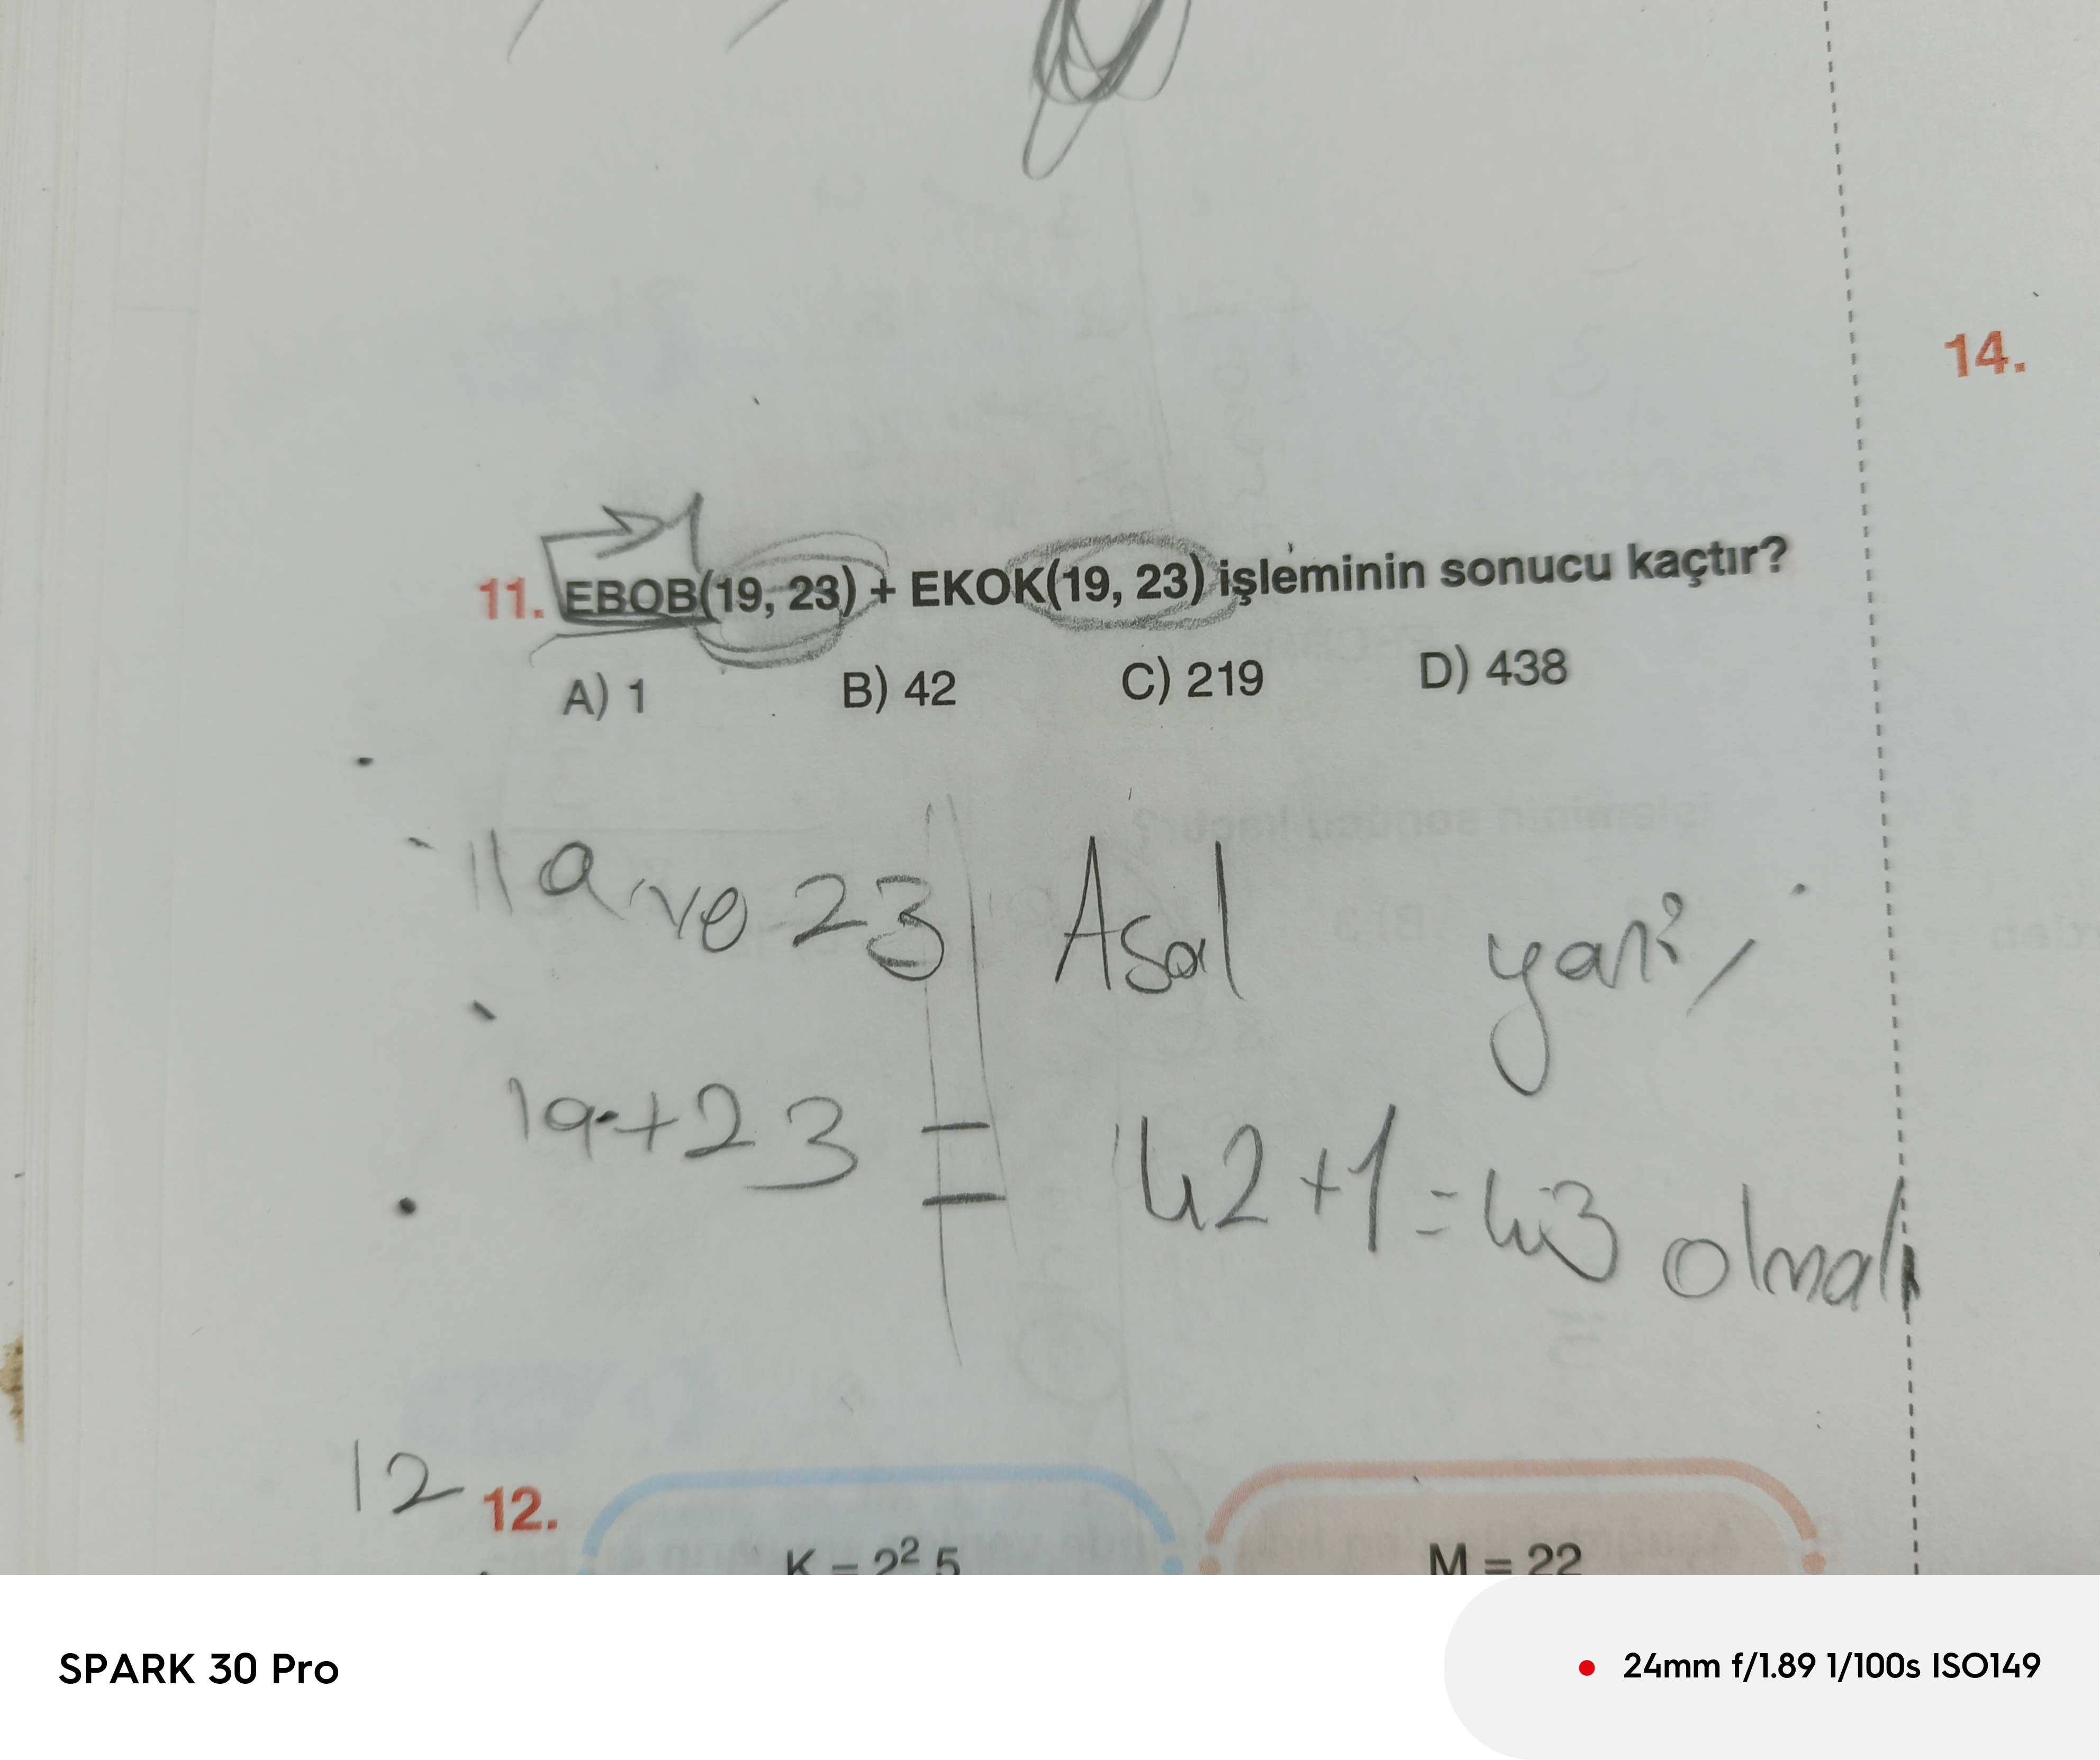 14.
11. EBOB(19, 23) + EKOK(19, 23) işleminin sonucu kaçtır?
A) 1 B) 42 C) 219 D) 438
19 ve 23 Asal yani,
19+23 = 42+1=43 olmalı
12 12.
K = 2² 5 M = 22
SPARK 30 Pro
24mm f/1.89 1/100s ISO149